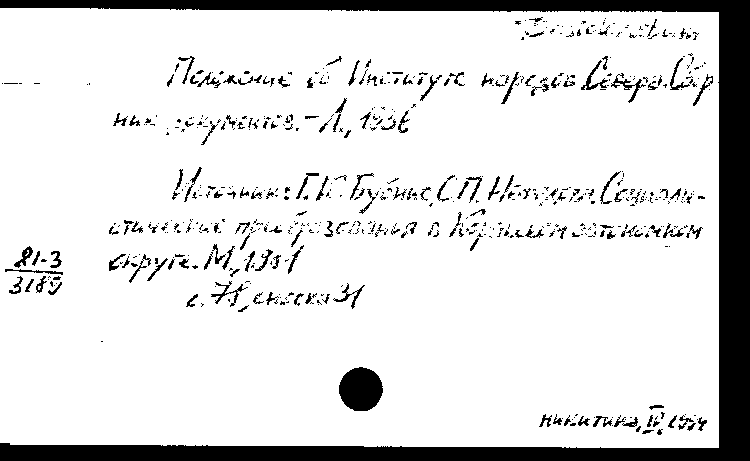 Desideratum
Положение об Институте народов Севера. Сбор
ник документов. - Л., 1936
Источник: Г.К. Бубнис, С.П. Нефедова. Социали-
стические преобразования в Корякском автономном
округе. М., 1981
81-3
3189
с. 78, сноска 31
Никитина, IV, 1984